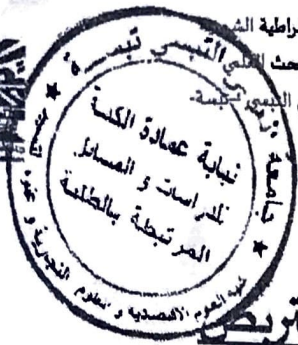 راطية الش
حث العلمي
التبسي -تبسة-
جامعة العربي التبسي تبسة
نيابة عمادة الكلية
للدراسات و المسائل
المرتبطة بالطلبة
كلية العلوم الاقتصادية و علوم التجارية و علوم
تربص